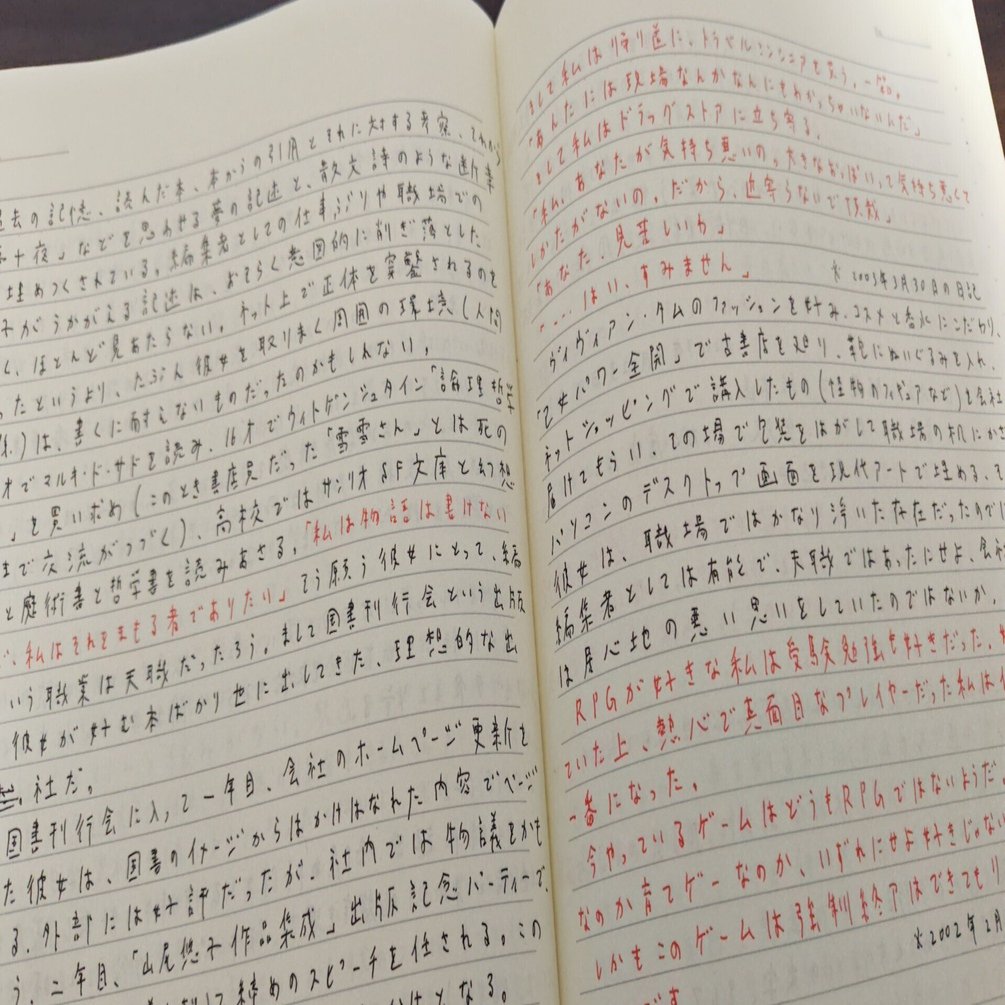 過去の記憶、読んだ本、本からの引用とそれに対する考察、それから
十夜」などを思わせる夢の記述と、散文詩のような連作業
埋めつくされている。編集者としての仕事ぶりや職場での
がうかがえる記述は、おそらく意図的に削ぎ落とした
く、ほとんど見あたらない。ネット上で正体を穿鑿されるのを
ったというより、たぶん彼女を取りまく周囲の環境(人間
)は、書くに耐えないものだったのかもしれない。
オでマルキ・ド・サドを読み、16才でウィトゲンシュタイン「論理哲学
」を買い求め(このとき書店員だった「雪雪さん」とは死の
まで交流がつづく)、高校ではサンリオSF文庫と幻想
と魔術書と哲学書を読みあさる。「私は物語は書けない
、私はそれをませる者でありたい」そう願う彼女にとって、編
いう職業は天職だったろう。まして国書刊行会という出版
彼女が好む本ばかり世に出してきた、理想的な出
社だ。
国書刊行会に入って一年目、会社のホームページ更新を
た彼女は、国書のイメージからはかけはなれた内容でページ
る。外部には好評だったが、社内では物議をかも
う。二年目、「山尾悠子作品集成」出版記念パーティーで、
締めのスピーチを任される。この
となる。
そして私は帰り道に、トラベルミンシェアを買う。一箱。
「あんたには現場なんかなんにもわかっちゃいないんだ」
そして私はドラッグストアに立ち寄る。
「私、あなたが気持ち悪いの。大きなおっぱいって気持ち悪くて
しかたがないの。だから、近寄らないで頂戴」
「あなた、見苦しいわ」
「……はい、すみません」
※2003年3月30日の日記
ヴィヴィアン・タムのファッションを好み、コスメと香水にこだわり、
「乙女パワー全開」で古書店を廻り、鞄にぬいぐるみを入れ、
ネットショッピングで購入したもの(怪物のフィギュアなど)を会社
届けてもらい、その場で包装をはがして職場の机にかざ
パソコンのデスクトップ画面を現代アートで埋める。そ
彼女は、職場ではかなり浮いた存在だったので
編集者としては有能で、天職ではあったにせよ、会社
は居心地の悪い思いをしていたのではないか。
RPGが好きな私は受験勉強も好きだった。
ていた上、熱心で真面目なプレイヤーだった私は
一番になった。
今やっているゲームはどうもRPGではないようだ
なのか育てゲーなのか、いずれにせよ好きじゃない
しかもこのゲームは強制終了はできてもリ
※2002年2月
です